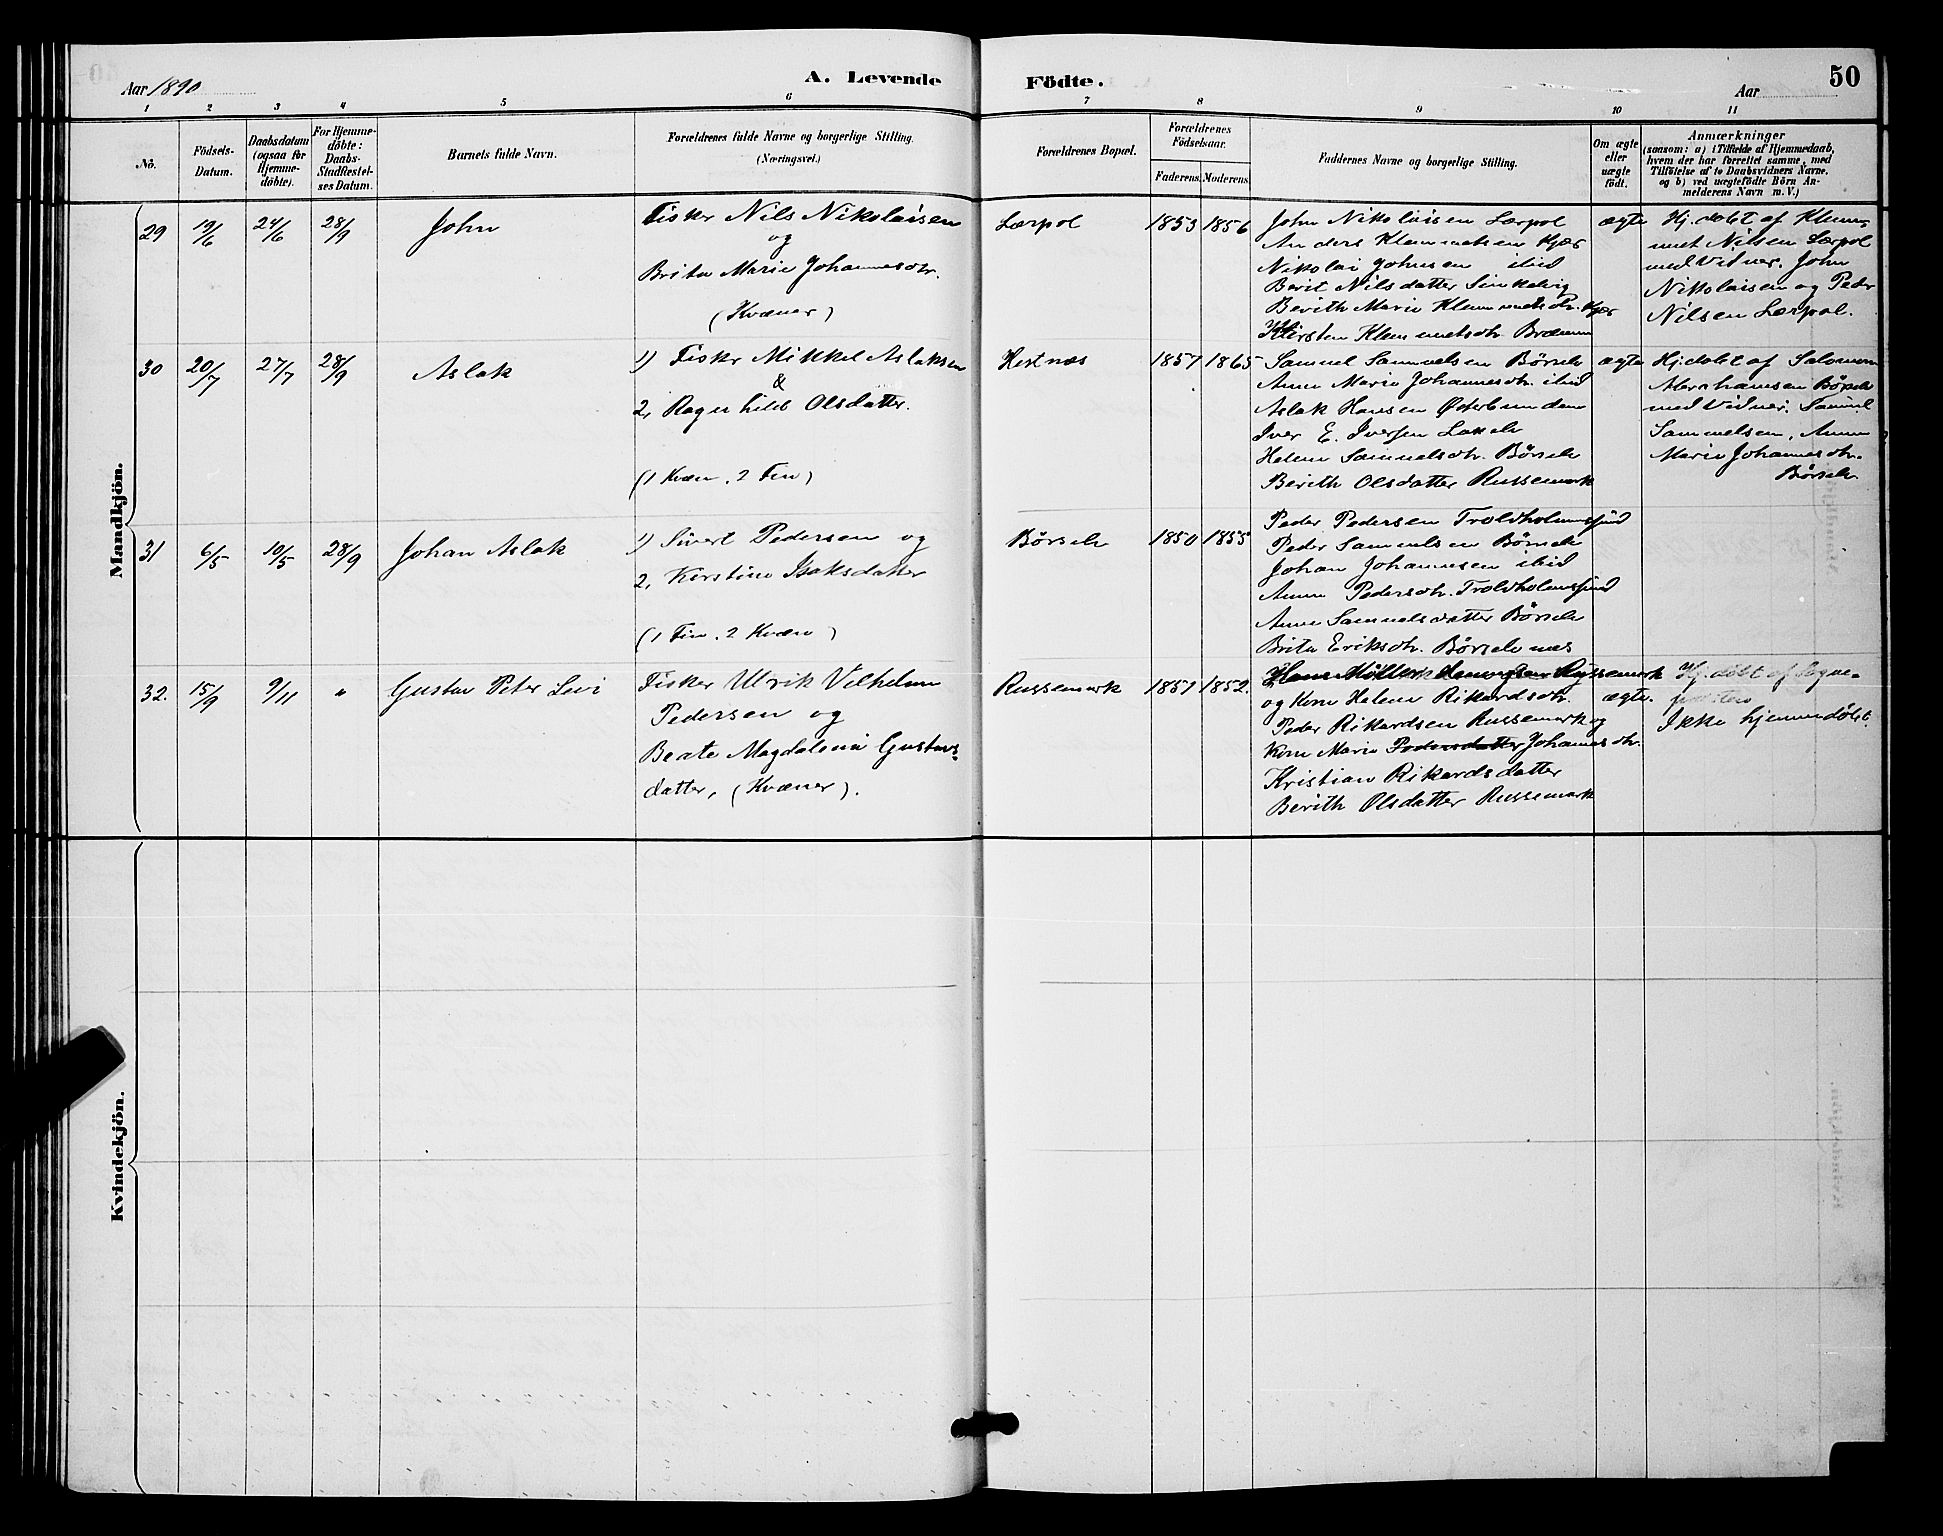 Aar 1890
A. Levende
Födte.
Aar
50
1 2 3 4 5 6 7 8 9 10 11
No.
Födsels-
Datum.
Daabsdatum
(ogsaa for
Hjemme-
döbte).
For Hjemme-
döbte:
Daabs-
Stadfæstel-
ses Datum.
Barnets fulde Navn.
Forældrenes fulde Navne og borgerlige Stilling.
(Næringsvei.)
Forældrenes Bopæl.
Forældrenes
Födselsaar.
Faderens.
Moderens.
Faddernes Navne og borgerlige Stilling.
Om ægte
eller
uægte
födt.
Anmærkninger
(saasom: a) i Tilfælde af Hjemmedaab,
hvem der har forrettet samme, med
Tilföielse af to Daabsvidners Navne,
og b) ved uægtefödte Börn An-
melderens Navn m. V.)
Mandkjön.
29
19/6
24/6
28/9
John
Fisker Nils Nikolaisen
og
Brita Marie Johannesdtr.
(Kvæner)
Lærpol
1853
1856
John Nikolaisen Lærpol
Anders Klemmetsen Kjæs
Nikolai Johnsen ibid
Berit Nilsdatter
Berith Marie Klemmetsdtr. Kjæs
Kirsten Klemmetsdtr.
ægte
Hj. døbt af Klem-
met Nilsen Lærpol
med Vidner. John
Nikolaisen og Peder
Nilsen Lærpol.
30
20/7
27/7
28/9
Aslak
1) Fisker Mikkel Aslaksen
&
2, Ragnhild Olsdatter.
(1 Kvæn. 2 Fin)
Hestnæs
1857
1865
Samuel Samuelsen Børselv
Anne Marie Johannesdtr. ibid
Aslak Hansen Østerbunden
Iver E. Iversen
Helene Samuelsdtr. Børselv
Berith Olsdatter Russemark
ægte
Hj. døbt af Salomon
Abrahamsen Børselv
med Vidner. Samuel
Samuelsen, Anne
Marie Johannesdtr.
Børselv.
31
6/5
10/5
28/9
Johan Aslak
1) Sivert Pedersen og
2, Kirstine Isaksdatter
(1 Fin. 2 Kvæn)
Børselv
1850
1855
Peder Pedersen Troldholmsund
Peder Samuelsen Børselv
Johan Johannesen ibid
Anne Pedersdtr. Troldholmsund
Anne Samuelsdatter Børselv
Brita Eriksdtr. Børselvnæs
32.
15/9
9/11
"
Gustav Peter Levi
Fisker Ulrik Vilhelm
Pedersen og
Beate Magdalena Gustavs-
datter, (Kvæner).
Russemark
1851
1852.
Russemark
og Kone Helene Rikardsdtr.
Peder Rikardsen Russemark og
Kone Marie Pedersdatter Johannesdtr.
Kristian Rikardsdatter
Berith Olsdatter Russemark
ægte.
Hj. døbt af Sogne-
præsten
Ikke hjemmedøbt.
Kvindekjön.